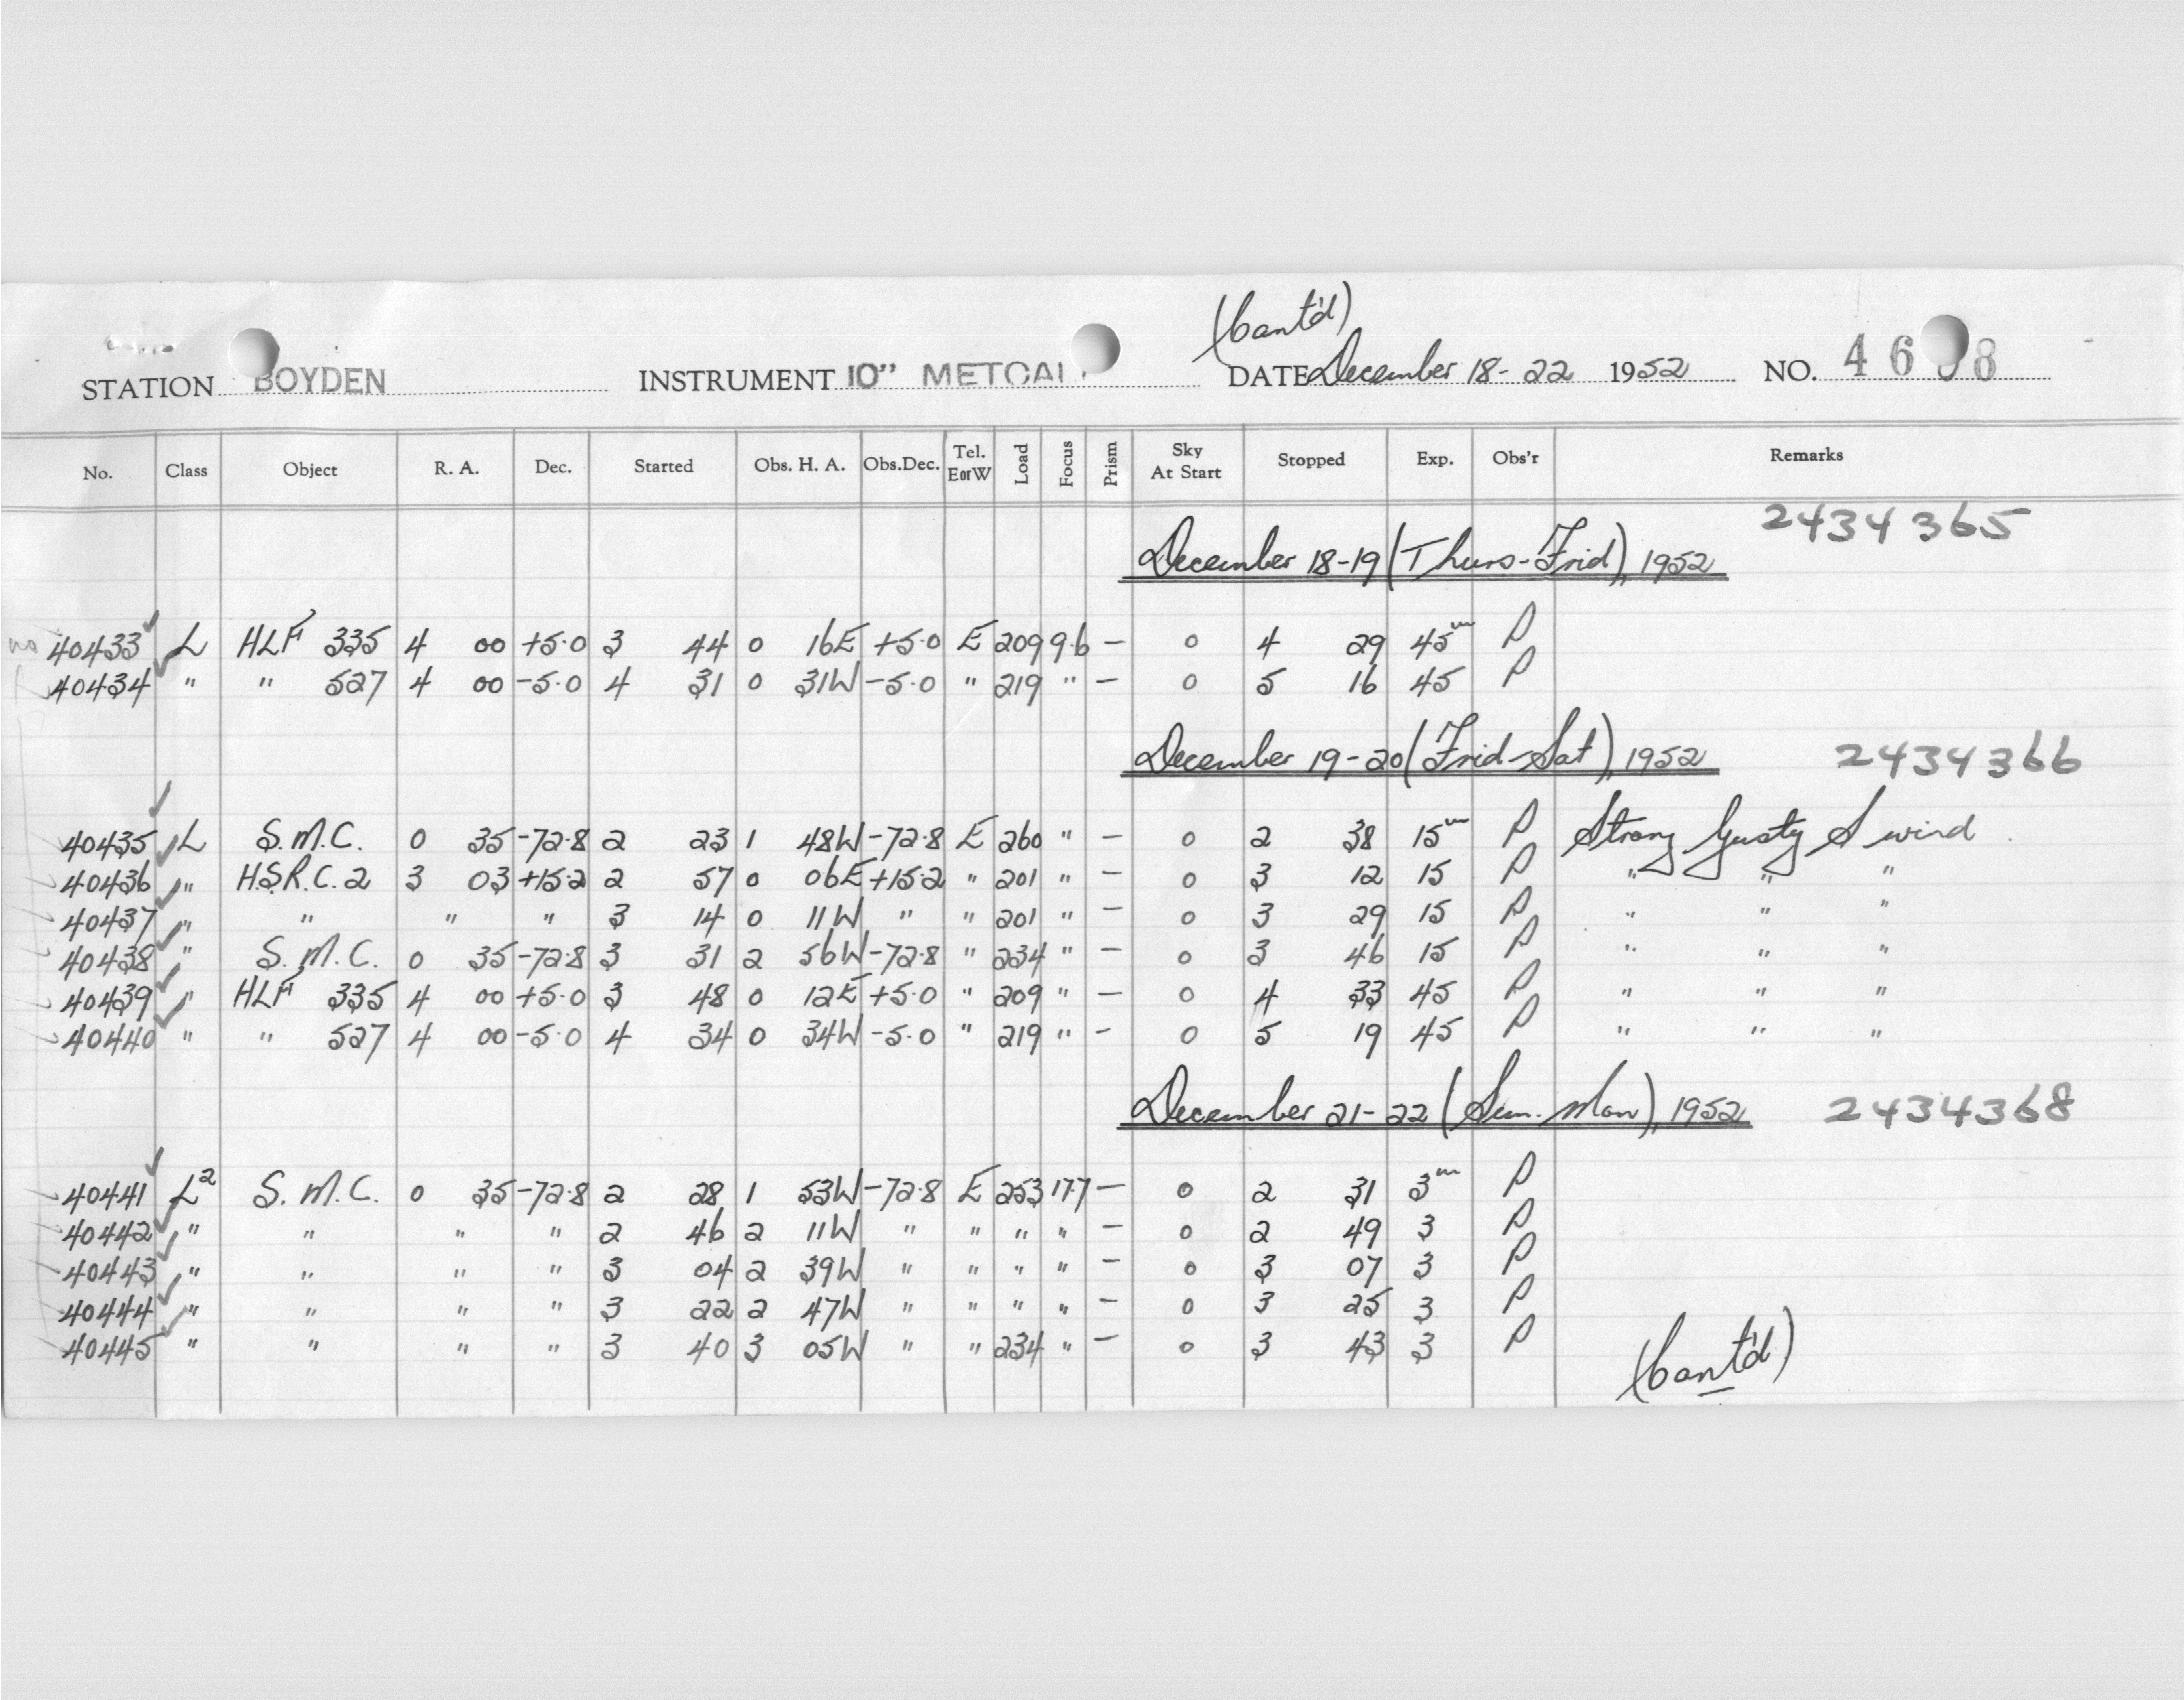 (Cont'd)
STATION BOYDEN INSTRUMENT 10" METCAL DATE December 18-22 1952 NO. 46 8
No. Class Object R. A. Dec. Started Obs. H. A. Obs.Dec. Tel. E or W Load Focus Prism Sky At Start Stopped Exp. Obs'r Remarks
2434365
December 18-19 (Thurs-Frid), 1952
no 40433 L HLF 335 4 00 +5.0 3 44 0 16E +5.0 E 209 9.6 — 0 4 29 45m P
40434 " " 527 4 00 -5.0 4 31 0 31W -5.0 " 219 " — 0 5 16 45 P
December 19-20 (Frid-Sat), 1952 2434366
40435 L S.M.C. 0 35 -72.8 2 23 1 48W -72.8 E 260 " — 0 2 38 15m P Strong Gusty S wind
40436 " H.S.R.C. 2 3 03 +15.2 2 57 0 06E +15.2 " 201 " — 0 3 12 15 P " " "
40437 " " " " 3 14 0 11W " " 201 " — 0 3 29 15 P " " "
40438 " S.M.C. 0 35 -72.8 3 31 2 56W -72.8 " 234 " — 0 3 46 15 P " " "
40439 " HLF 335 4 00 +5.0 3 48 0 12E +5.0 " 209 " — 0 4 33 45 P " " "
40440 " " 527 4 00 -5.0 4 34 0 34W -5.0 " 219 " — 0 5 19 45 P " " "
December 21-22 (Sun.-Mon), 1952 2434368
40441 L² S.M.C. 0 35 -72.8 2 28 1 53W -72.8 E 253 17.7 — 0 2 31 3m P
40442 " " " " 2 46 2 11W " " " " — 0 2 49 3 P
40443 " " " " 3 04 2 39W " " " " — 0 3 07 3 P
40444 " " " " 3 22 2 47W " " " " — 0 3 25 3 P
40445 " " " " 3 40 3 05W " " 234 " — 0 3 43 3 P
(Cont'd)